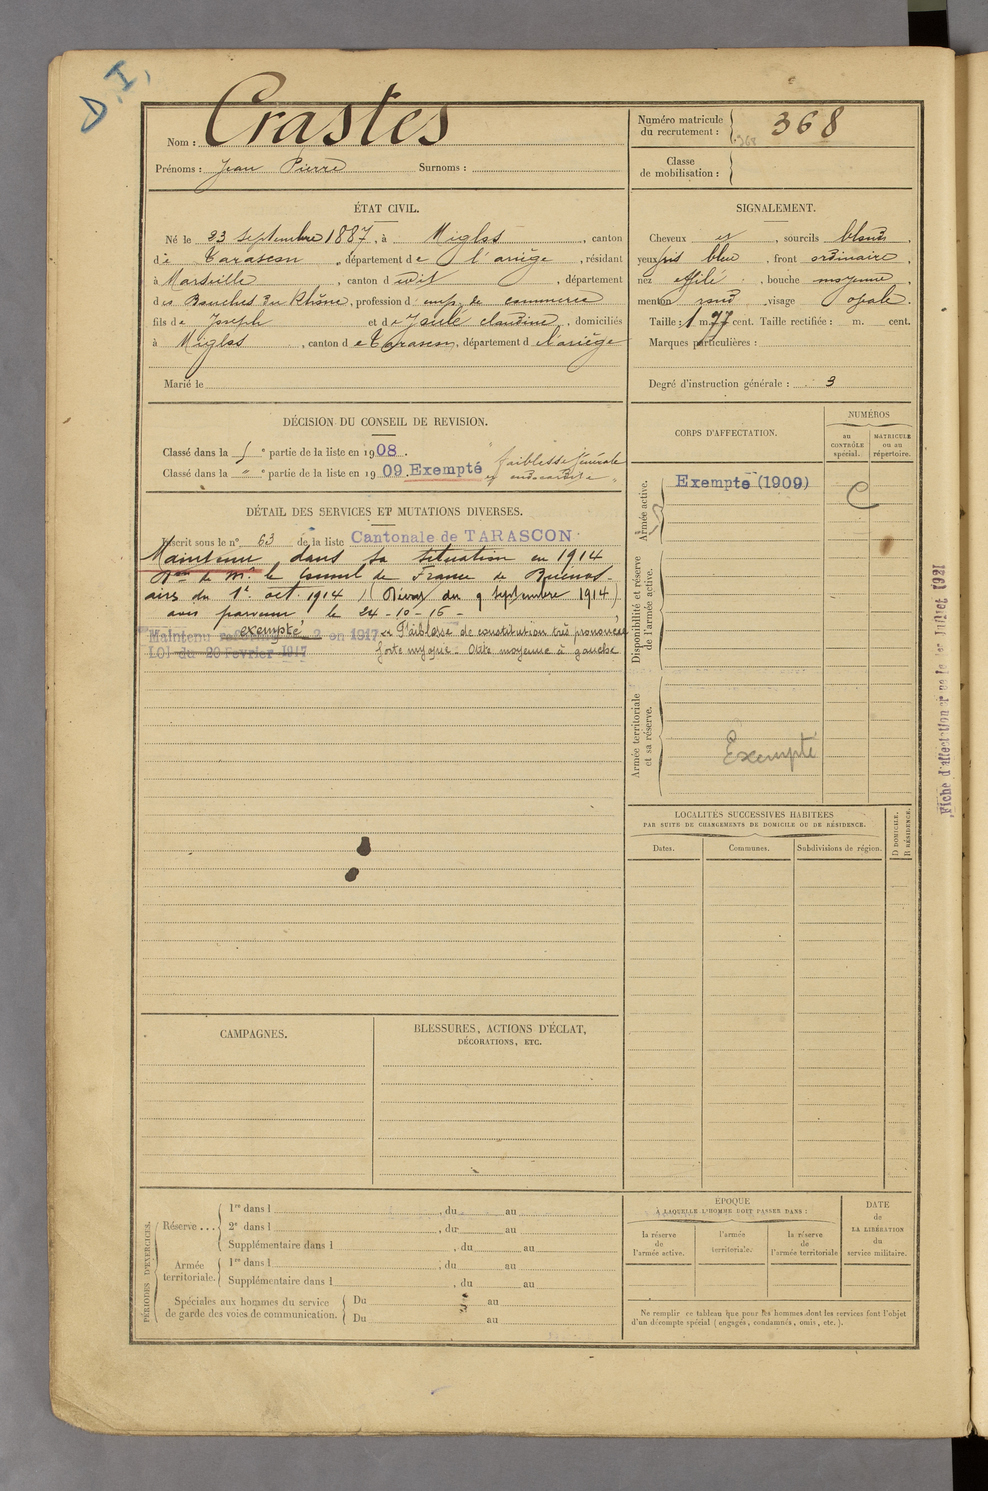 D. I.
Nom : Crastes
Prénoms : Jean Pierre Surnoms :
Numéro matricule du recrutement : 368
Classe de mobilisation :
ÉTAT CIVIL.
Né le 23 septembre 1887, à Miglos, canton
de Tarascon, département de l'ariège, résidant
à Marseille, canton d udit, département
des Bouches du Rhône, profession d'emp. de commerce
fils de Joseph et de claudine, domiciliés
à Miglos, canton de Tarascon, département d el'ariège
Marié le
SIGNALEMENT.
Cheveux et, sourcils blonds,
yeux gris bleu, front ordinaire,
nez effilé, bouche moyenne,
menton rond, visage ovale.
Taille : 1 m. 77 cent. Taille rectifiée : m. cent.
Marques particulières :
Degré d'instruction générale : 3
DÉCISION DU CONSEIL DE REVISION.
Classé dans la ° partie de la liste en 1908.
Classé dans la " ° partie de la liste en 1909. Exempté faiblesse générale
et endocardite
CORPS D'AFFECTATION.
NUMÉROS
au CONTRÔLE spécial.
MATRICULE ou au répertoire.
Armée active.
Exempté (1909)
C
Disponibilité et réserve de l'armée active.
Armée territoriale et sa réserve.
Exempté
DÉTAIL DES SERVICES ET MUTATIONS DIVERSES.
Inscrit sous le n° 63 de la liste Cantonale de TARASCON
Maintenu dans sa situation en 1914
de Mr le Consul de France de Buenos-
aires du 1er oct. 1914 (Décret du 9 septembre 1914)
avis parvenu le 24-10-16-
Maintenu exempté 2 en 1917 Faiblesse de constitution très prononcée
LOI du 20 février 1917 forte myopie - Otite moyenne à gauche
LOCALITÉS SUCCESSIVES HABITÉES
PAR SUITE DE CHANGEMENTS DE DOMICILE OU DE RÉSIDENCE.
Dates. Communes. Subdivisions de région.
D DOMICILE.
R RÉSIDENCE.
Fiche d'affectation le 1er Juillet 1921
CAMPAGNES.
BLESSURES, ACTIONS D'ÉCLAT,
DÉCORATIONS, ETC.
PÉRIODES D'EXERCICES.
Réserve ...
1re dans l , du au
2e dans l , du au
Supplémentaire dans l , du au
Armée territoriale.
1re dans l , du au
Supplémentaire dans l , du au
Spéciales aux hommes du service
de garde des voies de communication.
Du au
Du au
ÉPOQUE
À LAQUELLE L'HOMME DOIT PASSER DANS :
la réserve de l'armée active.
l'armée territoriale.
la réserve de l'armée territoriale
DATE de LA LIBÉRATION du service militaire.
Ne remplir ce tableau que pour les hommes dont les services font l'objet
d'un décompte spécial (engagés, condamnés, omis, etc.).